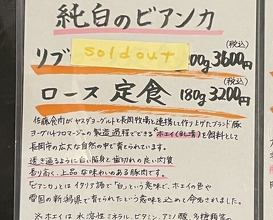 純白のビアンカ
(税込)
リブ sold out 00g 3600円
(税込)
ロース 定食 180g 3200円
佐藤食肉がヤスダヨーグルトと長岡牧場と連携して作り上げたブランド豚
ヨーグルトフロマージュの製造過程でできる"ホエイ(乳清)を飼料として
長岡市の広大な自然の中で育てられています。
透き通るように白い脂身と歯切れの良い肉質
香り高く、上品な味わいのある豚肉です。
ビアンカとはイタリア語で"白"という意味で、ホエイの色や
雪国の新潟県で育ったという意味を込めて命名されました。
※ホエイは水溶性ミネラル、ビタミン、アミノ酸